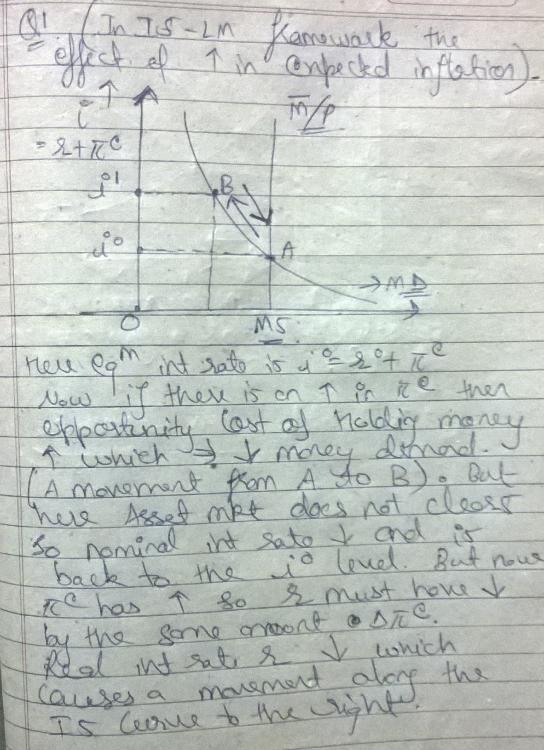 Q1 (In IS-LM framework the
effect of ↑ in expected inflation).
i↑
= r + πᵉ
M̄/P
i¹
B
i⁰
A
→ MD
O
MS
Here eqᵐ int rate is i⁰ = r⁰ + πᵉ
Now if there is an ↑ in πᵉ then
opportunity cost of Holdig money
↑ which ⇒ ↓ money demand.
(A movement from A to B). But
here Asset mkt does not clear
So nominal int rate ↓ and is
back to the i⁰ level. But now
πᵉ has ↑ so r must have ↓
by the same amount Δπᵉ.
Real int rate r ↓ which
causes a movement along the
IS curve to the right.